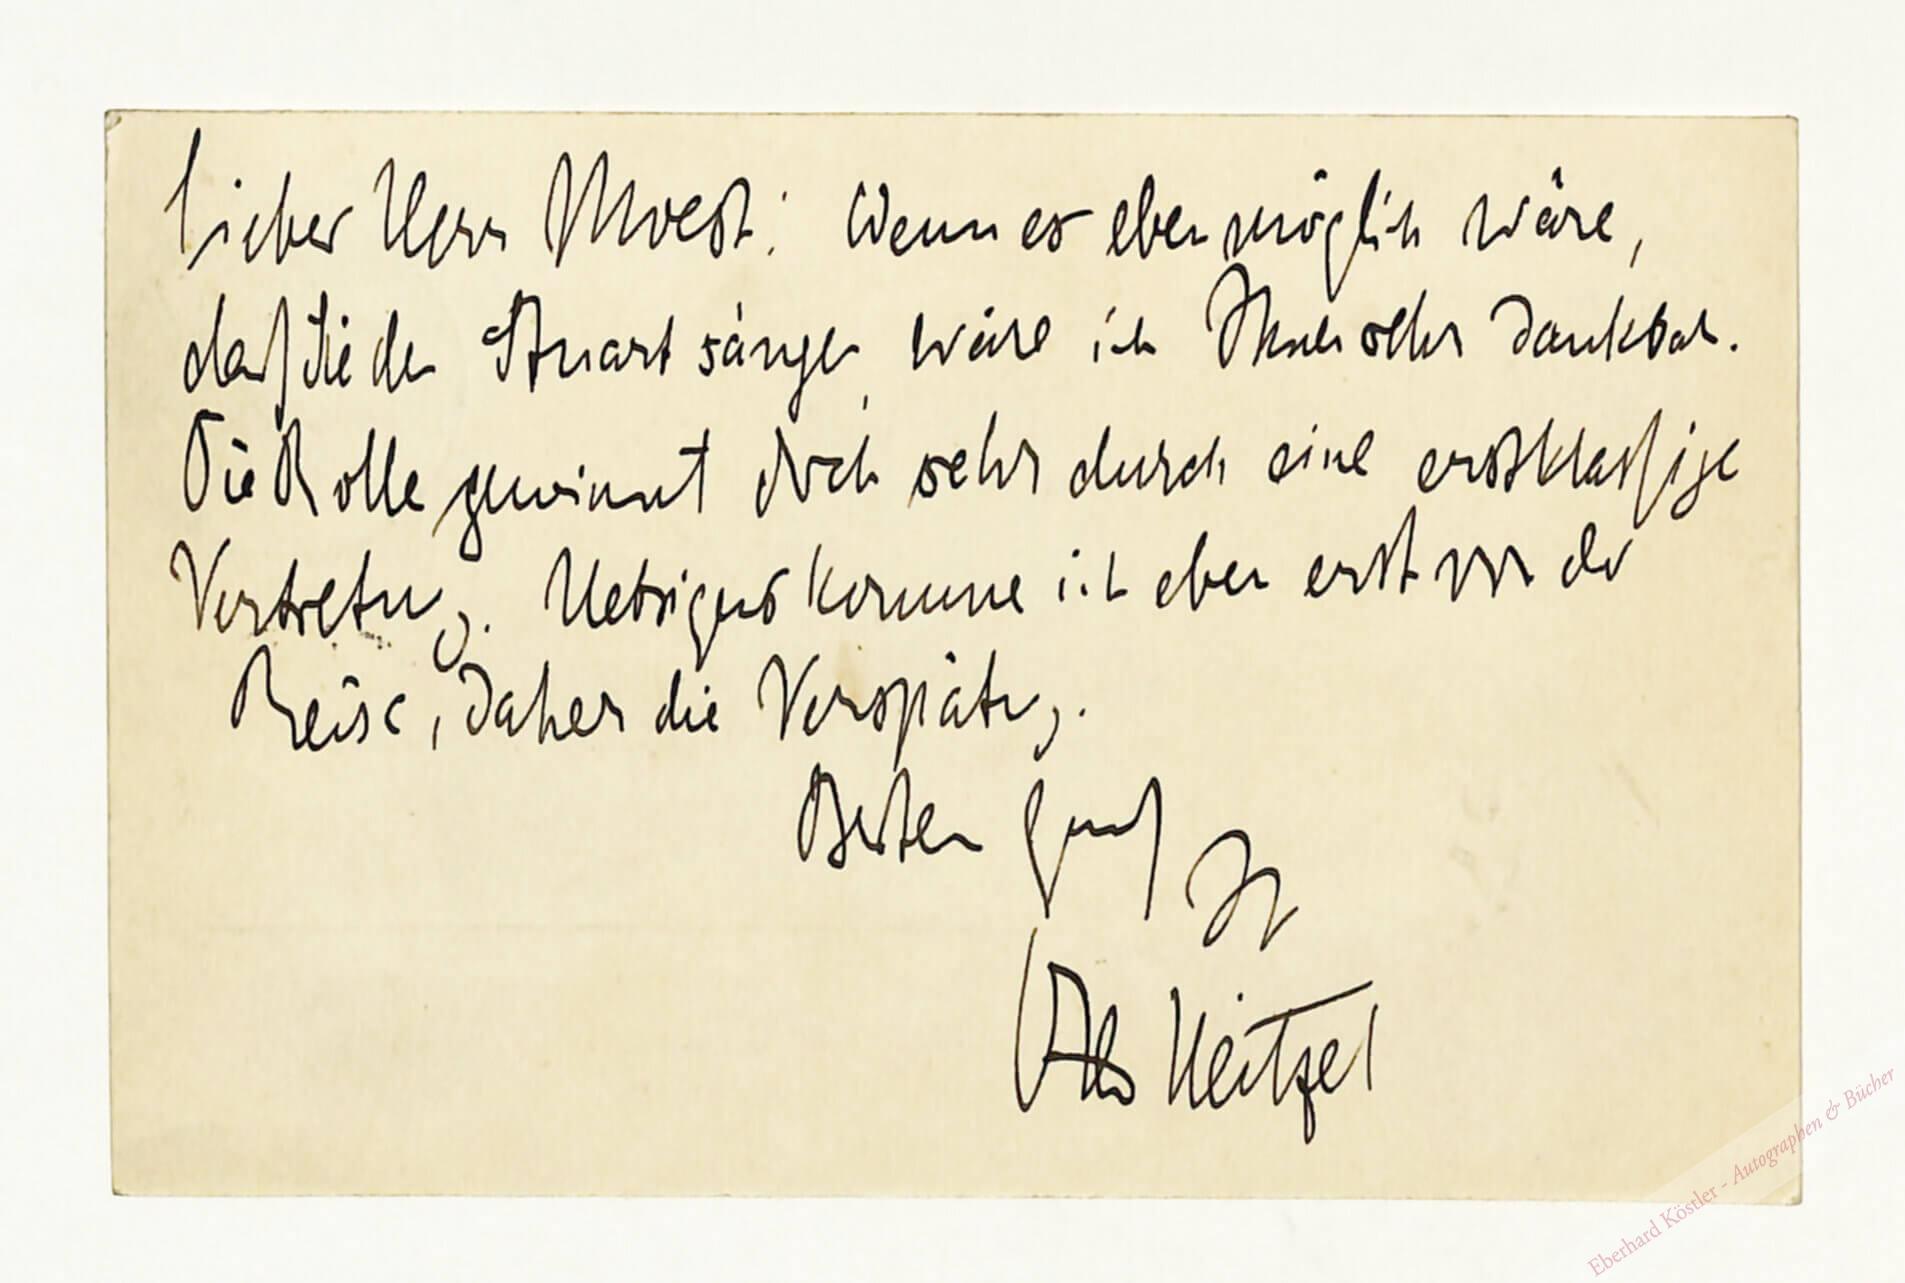 Lieber Herr Moest! Wenn es eben möglich wäre,
daß Sie den Stuart sängen, wäre ich Ihnen sehr dankbar.
Die Rolle gewinnt doch sehr durch eine erstklassige
Vertretung. Uebrigens komme ich eben erst von der
Reise, daher die Verspätung.
Besten Gruß
Ihr
Otto Neitzel
Eberhard Köstler - Autographen & Bücher